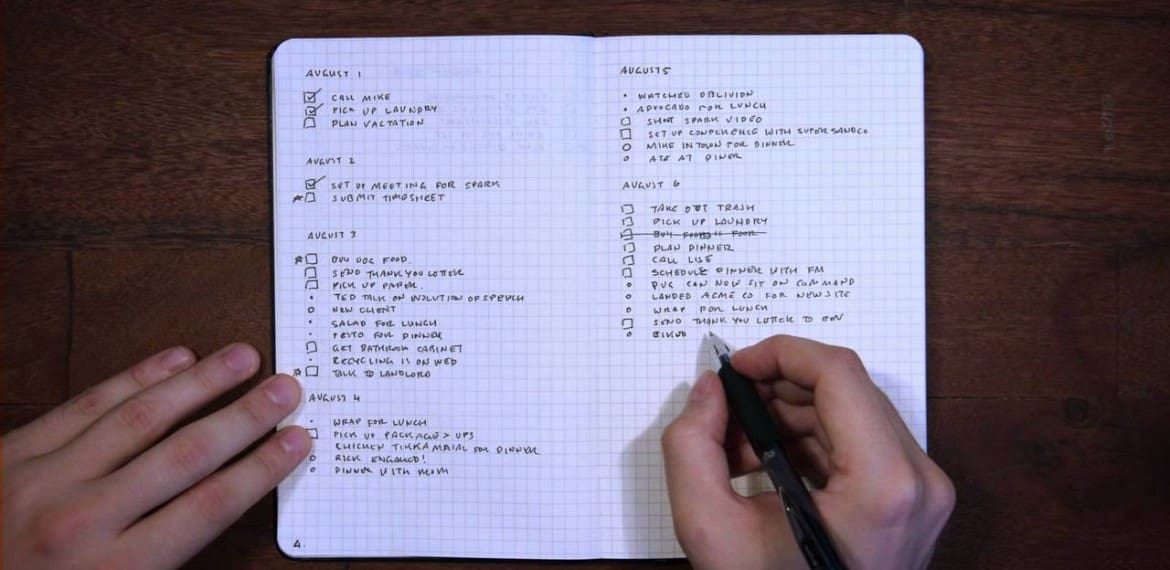 AUGUST 1
CALL MIKE
PICK UP LAUNDRY
PLAN VACTATION
AUGUST 2
SET UP MEETING FOR SPARK
SUBMIT TIMESHEET
AUGUST 3
BUY DOG FOOD.
SEND THANK YOU LETTER
PICK UP PAPER.
TED TALK ON EVOLUTION OF SPEECH
NEW CLIENT
SALAD FOR LUNCH
PESTO FOR DINNER
GET BATHROOM CABINET
RECYCLING IS ON WED
TALK TO LANDLORD
AUGUST 4
WRAP FOR LUNCH
PICK UP PACKAGE > UPS
CHICKEN TIKKA MAIAL FOR DINNER
RICK ENGAGED!
DINNER WITH MOM
4.
AUGUST 5
WATCHED OBLIVION
ADVOCADO FOR LUNCH
SHOOT SPARK VIDEO
SET UP CONFERENCE WITH SUPERSANDCO
MIKE IN TOWN FOR DINNER
ATE AT DINER
AUGUST 6
TAKE OUT TRASH
PICK UP LAUNDRY
BUY
PLAN DINNER
CALL LISE
SCHEDULE DINNER WITH FM
PUG CAN NOW SIT ON COMMAND
LANDED ACME CO FOR NEW SITE
WRAP FOR LUNCH
SEND THANK YOU LETTER TO BEV